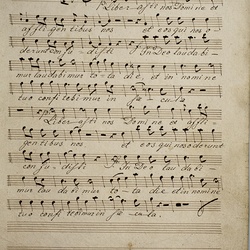 Liber-asti nos Domine ex
affli gentibus nos et eos qui nos o-
derunt con fu - disti In Deo laudabi-
mur laudabimur to - ta die et in nomine
tuo confitebimur in sæ - cula
Liber-asti nos Domine ex affli-
gentibus nos et eos qui nos oderunt
con fu - disti In Deo lau dabi-
mur lau da bi mur to - ta die et in nomine
tuo confi tebimur in sæ - cu - la.